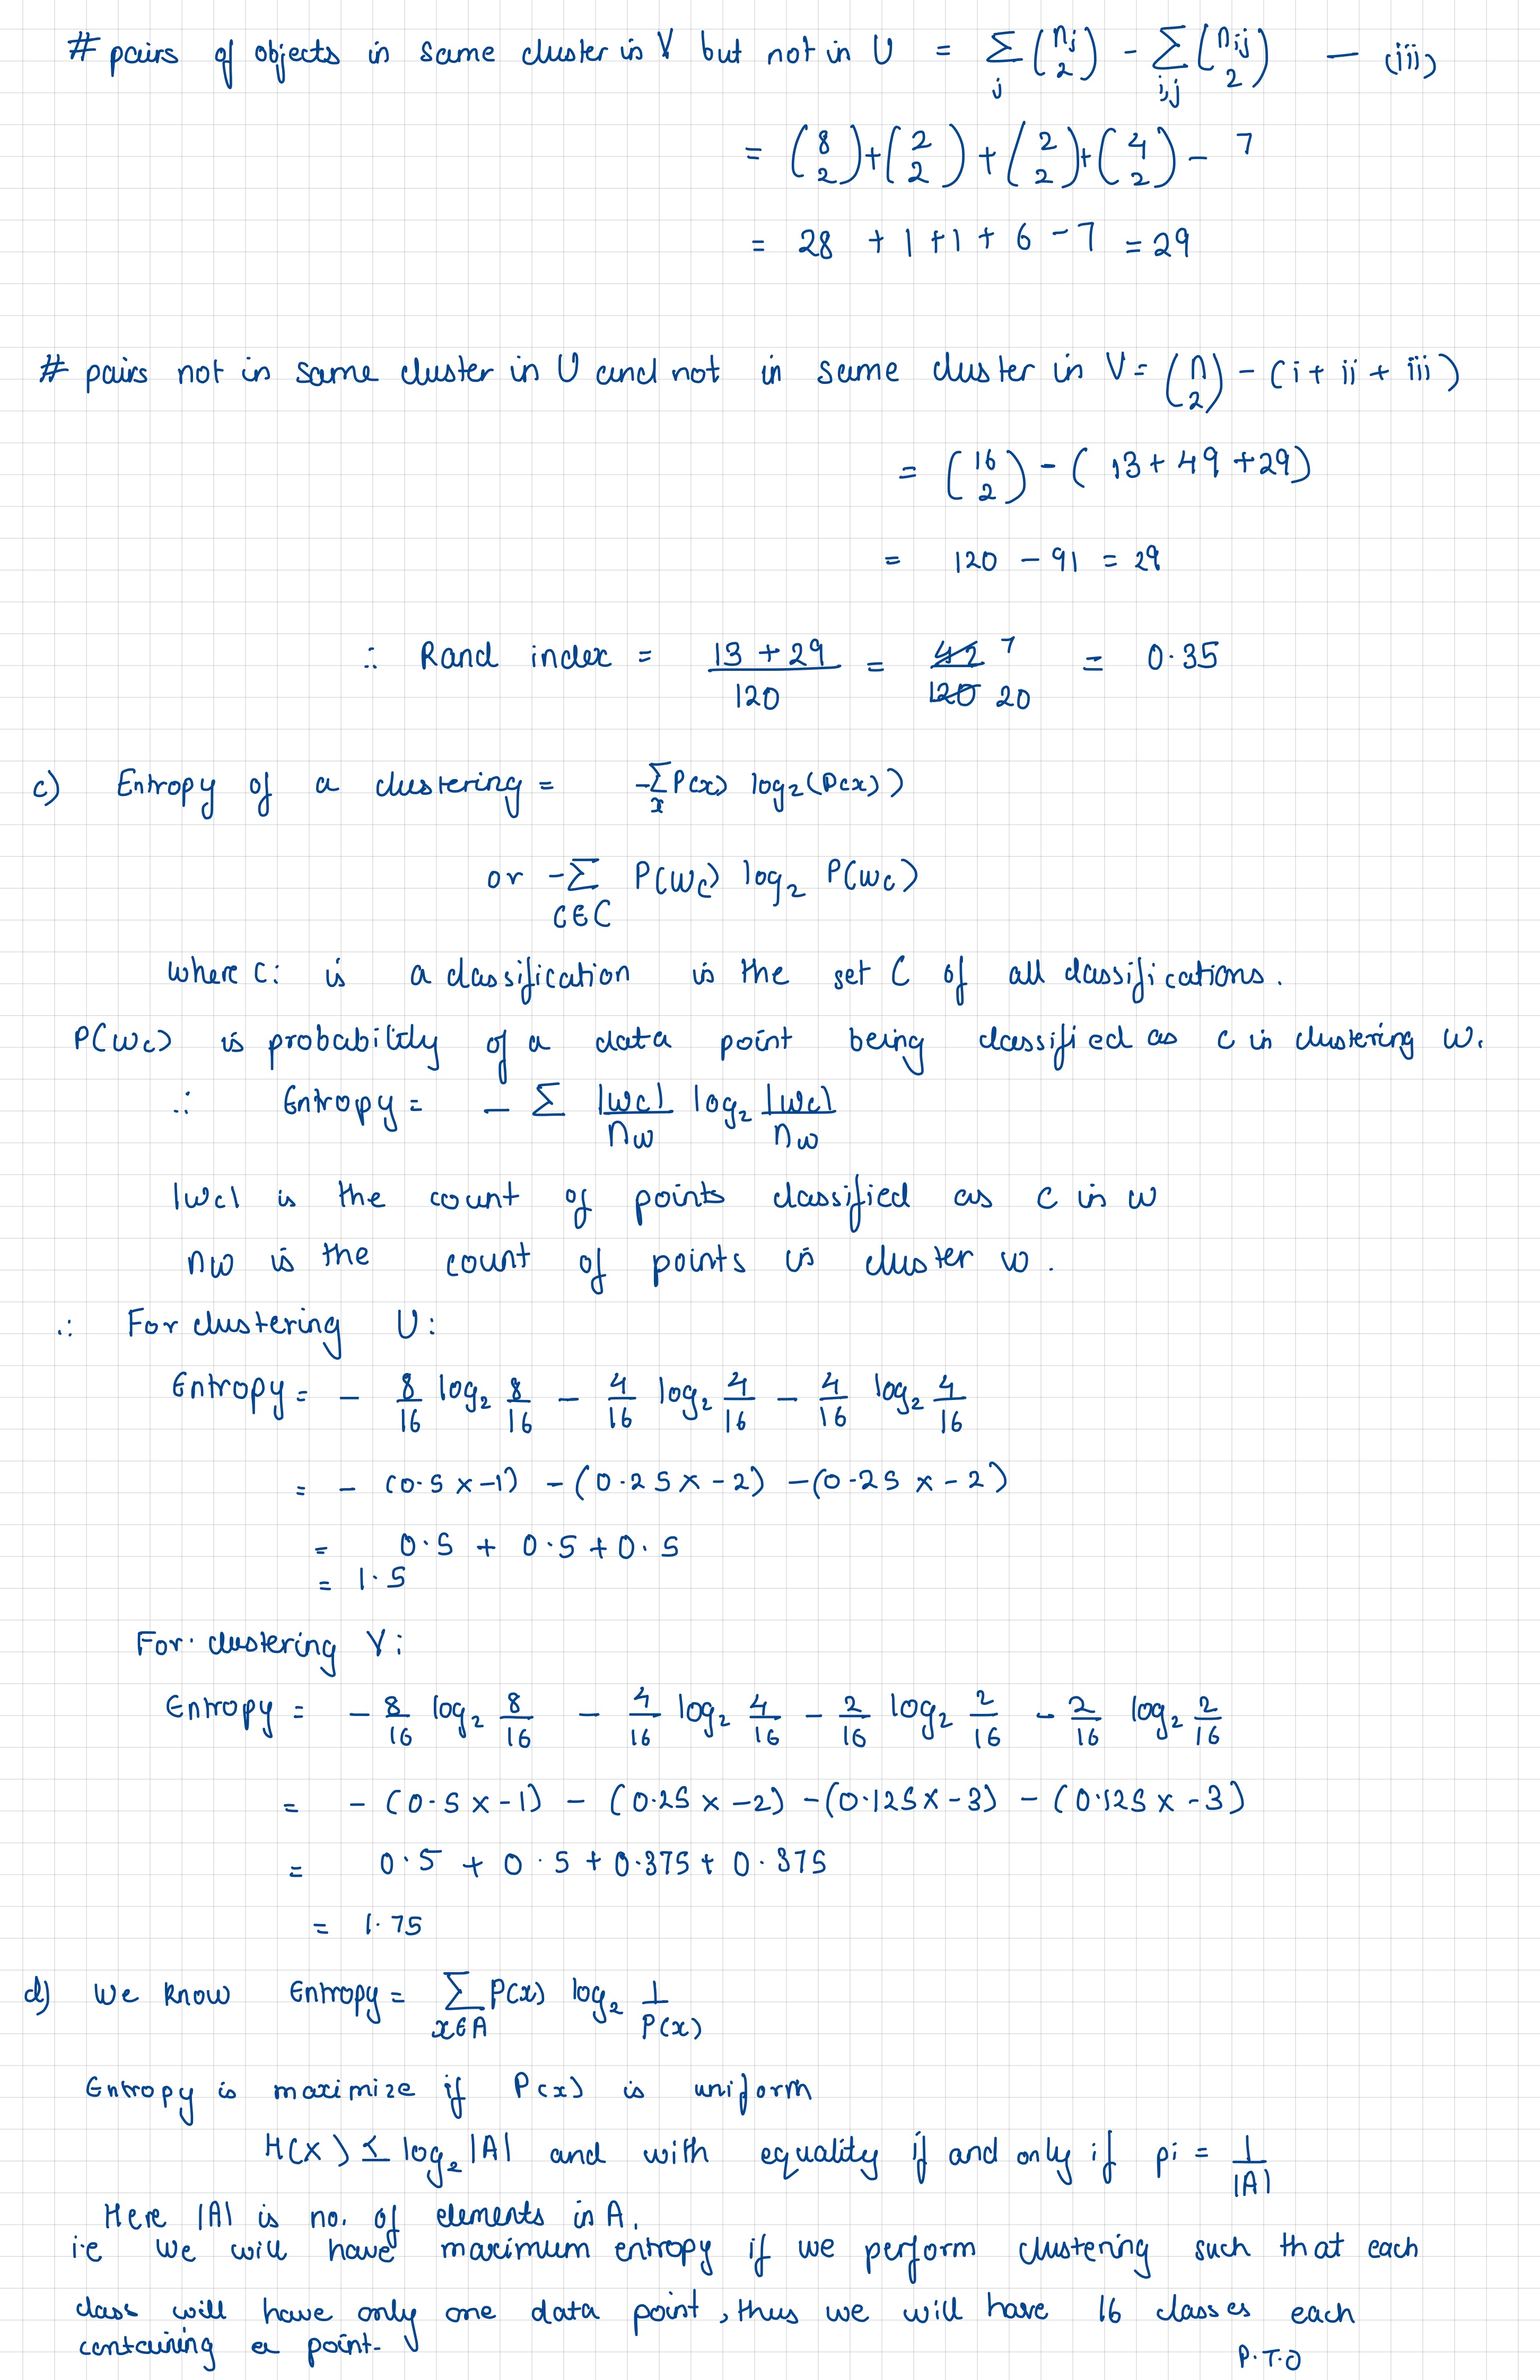 # pairs of objects in same cluster in V but not in U = ∑_j (n_j 2) - ∑_{i,j} (n_ij 2) — (iii)
= (8 2) + (2 2) + (2 2) + (4 2) - 7
= 28 + 1 + 1 + 6 - 7 = 29
# pairs not in same cluster in U and not in same cluster in V = (n 2) - (i + ii + iii)
= (16 2) - (13 + 49 + 29)
= 120 - 91 = 29
∴ Rand index = (13 + 29)/120 = 42/120 7/20 = 0.35
c) Entropy of a clustering = -∑_x P(x) log₂(P(x))
or -∑_{c∈C} P(w_c) log₂ P(w_c)
where c: is a classification is the set C of all classifications.
P(w_c) is probability of a data point being classified as c in clustering w.
∴ Entropy = - ∑ |w_c|/n_w log₂ |w_c|/n_w
|w_c| is the count of points classified as c in w
n_w is the count of points in cluster w.
∴ For clustering U:
Entropy = - 8/16 log₂ 8/16 - 4/16 log₂ 4/16 - 4/16 log₂ 4/16
= - (0.5 x -1) - (0.25 x -2) - (0.25 x -2)
= 0.5 + 0.5 + 0.5
= 1.5
For clustering V:
Entropy = - 8/16 log₂ 8/16 - 4/16 log₂ 4/16 - 2/16 log₂ 2/16 - 2/16 log₂ 2/16
= - (0.5 x -1) - (0.25 x -2) - (0.125 x -3) - (0.125 x -3)
= 0.5 + 0.5 + 0.375 + 0.375
= 1.75
d) We know Entropy = ∑_{x∈A} P(x) log₂ 1/P(x)
Entropy is maximize if P(x) is uniform
H(X) ≤ log₂ |A| and with equality if and only if pi = 1/|A|
Here |A| is no. of elements in A.
i.e we will have maximum entropy if we perform clustering such that each
class will have only one data point, thus we will have 16 classes each
containing a point.
P.T.O